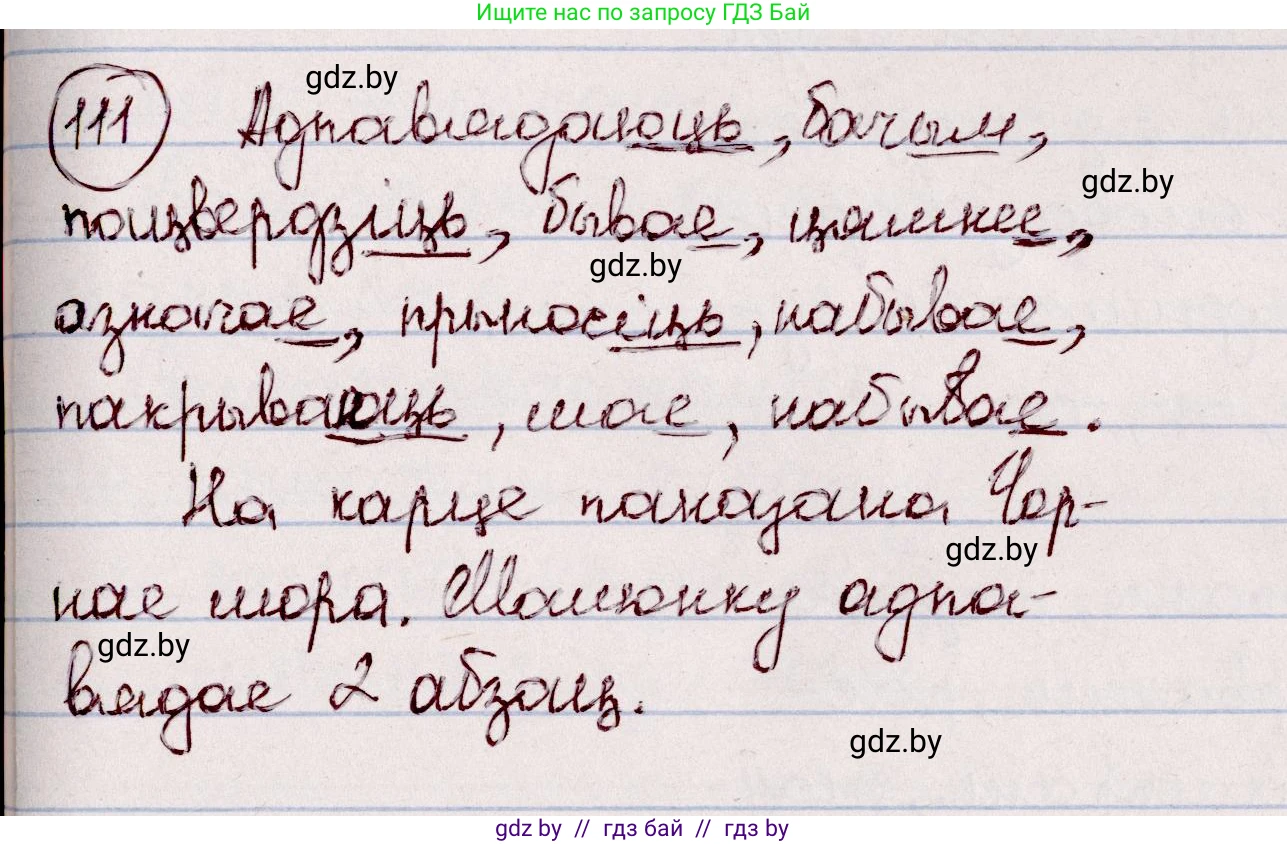 Ищите нас по запросу ГДЗ Бай
gdz.by
111 Адпавядаюць, бачым,
gdz.by
пацвердзіць, бывае, цямнее,
gdz.by
азначае, прыносіць, набывае,
пакрываюць, мае, набывае.
На карце паказана Чор-
gdz.by
нае мора. Малюнку адпа-
gdz.by
вядае 2 абзац.
gdz.by
gdz by // гдз бай // гдз by